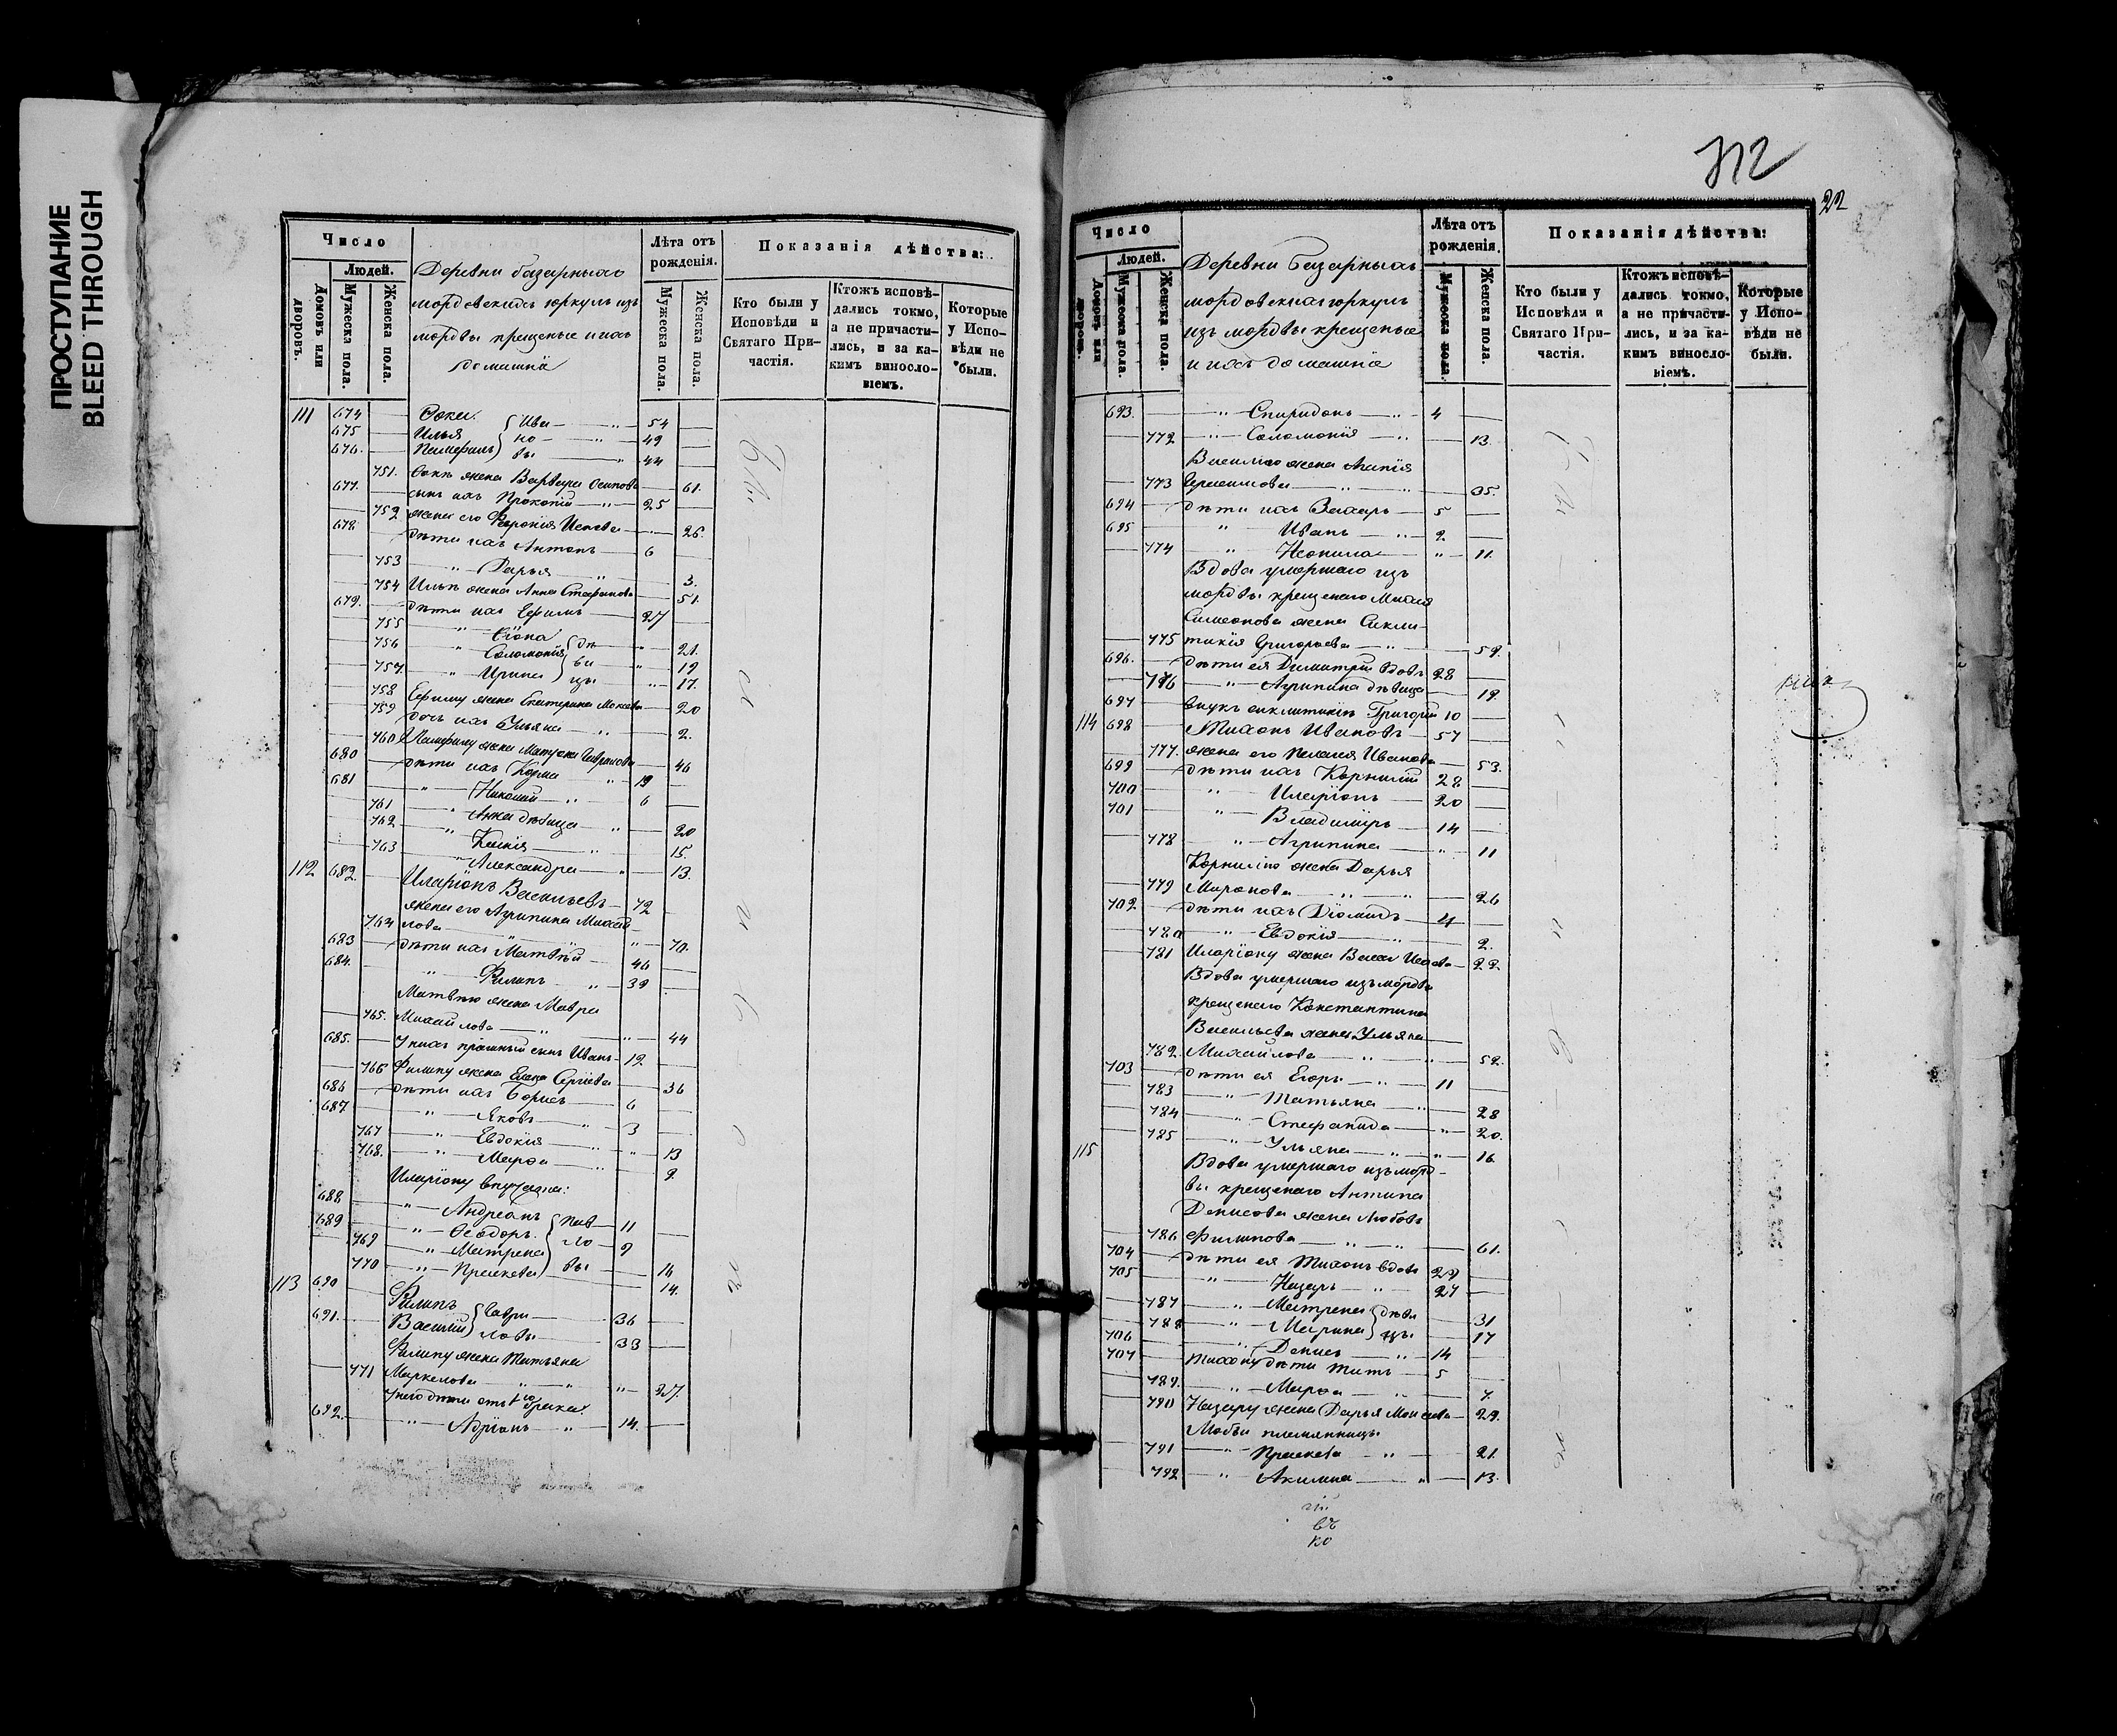 ПРОСТУПАНИЕ
BLEED THROUGH
Число
Домовъ или дворовъ.
Людей.
Мужеска пола.
Женска пола.
Деревни базарныхъ
мордовскихъ юркуль изъ
мордвы крещеные и ихъ
домашнiе
Лѣта отъ рожденiя.
Мужеска пола.
Женска пола.
Показанiя дѣйства:
Кто были у Исповѣди и Святаго Причастiя.
Ктожъ исповѣдались токмо, а не причастились, и за какимъ винословiемъ.
Которые у Исповѣди не были.
111 674 Фока } Ива 54
675 Илья } но 49
676 Памфилъ } вы 44
751. Фокѣ жена Варвара Осипова 61.
677. сынъ ихъ Прокопiй 25
752 жена его Исаева 26.
678 дѣти ихъ Антонъ 6
753 " Дарья " 3.
754 Ильѣ жена Анна Стефанова 51.
679. дѣти ихъ Ефимъ 27
755 " 21.
756 " Соломонiя } 19
757. " Ирина } дѣвицы 17.
758 Ефиму жена Екатерина 20
759 дочь ихъ Ульяна 2.
760 Памфилу жена Матрена 46
680 дѣти ихъ Козма 19
681 " Николай " 6
761 " Анна дѣвица " 20
762 " 15.
763 " Александра 13.
112 682. Иларiонъ Васильевъ 72
жена его Агрипина Михай
764 лова 70.
683 дѣти ихъ Матвѣй 46
684. " Филипъ " 39
Матвѣю жена Мавра
765. Михайлова " 44
685. у нихъ прiемный сынъ Иванъ 12
766 Филипу жена Елена Сергiева 36
686 дѣти ихъ Борисъ 6
687 " Яковъ " 3
767 " Евдокiя " 13
768. " Марфа " 9.
Иларiону внучата:
688 " Андреанъ } Пав 11
689 " Феодоръ } ло 9
769 " Матрена } вы 16
770 " Праскева } 14.
113 690 Филипъ } Гаври 36
691. Василiй } ловы 33
Филипу жена Татьяна
771 Маркелова " " 37.
у него дѣти отъ 1го брака:
692. " Адрiанъ " 14.
312
22
Число
Домовъ или дворовъ.
Людей.
Мужеска пола.
Женска пола.
Деревни Базарныхъ
мордовскихъ юркуль
изъ мордвы крещеные
и ихъ домашнiе
Лѣта отъ рожденiя.
Мужеска пола.
Женска пола.
Показанiя дѣйства:
Кто были у Исповѣди и Святаго Причастiя.
Ктожъ исповѣдались токмо, а не причастились, и за какимъ винословiемъ.
Которые у Исповѣди не были.
693. " Спиридонъ " 4
772 " Соломонiя " 13.
Василiю жена
773 " " 35.
694 дѣти ихъ Захаръ 5
695 " Иванъ " 2
774 " Неонила " 11.
Вдова умершаго изъ
мордвы крещенаго
Симеонова жена Сикли-
775 тикiя Григорьева " 59.
696. дѣти ея Димитрiй вдовъ 28
776 " Агрипина дѣвица 19.
697 внукъ Григорiй 10
114 698 Тихонъ Ивановъ 57
777. жена его Пелагея Иванова 53.
699 дѣти ихъ Корнилiй 28
700 " Иларiонъ 20
701 " Владимiръ 14
778 " Агрипина " 11
Корнилiю жена Дарья
779 Миронова " " 26
702. дѣти ихъ Дiомидъ 4
780 " Евдокiя " 2.
781 Иларiону жена 22.
Вдова умершаго изъ мордвы
крещенаго Константина
Васильева жена Ульяна
782. Михайлова " " 52.
703 дѣти ея Егоръ " 11
783 " Татьяна " 28
784 " Стефанида " 20.
785 " Ульяна " 16
115 Вдова умершаго изъ морд-
вы крещенаго Антипа
Денисова жена Любовь
786 Филипова " " 61.
704 дѣти ея Тихонъ вдовъ 29
705 " Назаръ " 27
787 " Матрена } дѣви 31
788 " Марина } цы 17
706 " Денисъ " 14
707 Тихону дѣти Титъ 5
789. " Марфа " 7.
790 Назару жена Дарья 22.
Любви племянницы
791 " Праскева " 21.
792 " Акилина " 13.